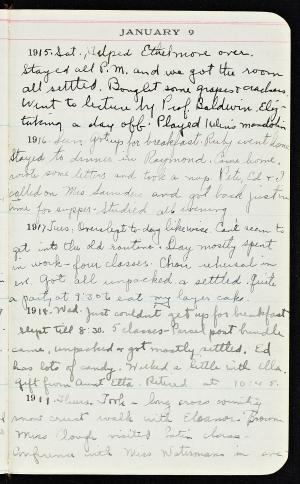 JANUARY 9
1915. Sat. Helped Ethel move over.
Stayed all P.M. and we got the room
all settled. Bought some grapes & crackers.
Went to lecture by Prof. Baldwin. Elsy
taking a day off. Played Julius mandolin
1916. Sun. Got up for breakfast. Ruby went home
Stayed to dinner in Raymond. Came home,
wrote some letters and took a nap. Pete, Ed & I
called on Mrs. Saunders and got back just in
time for supper. Studied all evening
1917. Tues. Overslept to day likewise. Can't seem to
get into the old routine. Day mostly spent
in work - four classes. Choir rehearsal in
ev. Got all unpacked & settled. Quite
a party at 9:30 to eat my layer cake.
1918. Wed. Just couldn't get up for breakfast
slept till 8:30. 5 classes. Parcel post bundle
came, unpacked & got mostly settled. Ed
has lots of candy. Worked a little with Ella.
Gift from Aunt Etta. Retired at 10:45.
191 Thurs. Took a long cross country
snow crust walk with Eleanor Brown
Miss Clough visited Latin class.
Conference with Miss Waterman in eve